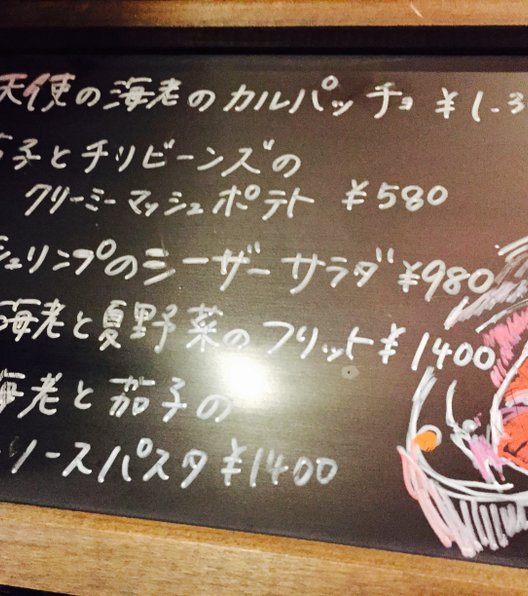 天使の海老のカルパッチョ ¥1.3
茄子とチリビーンズの
クリーミーマッシュポテト ¥580
シュリンプのシーザーサラダ ¥980
海老と夏野菜のフリット ¥1400
海老と茄子の
ソースパスタ ¥1400